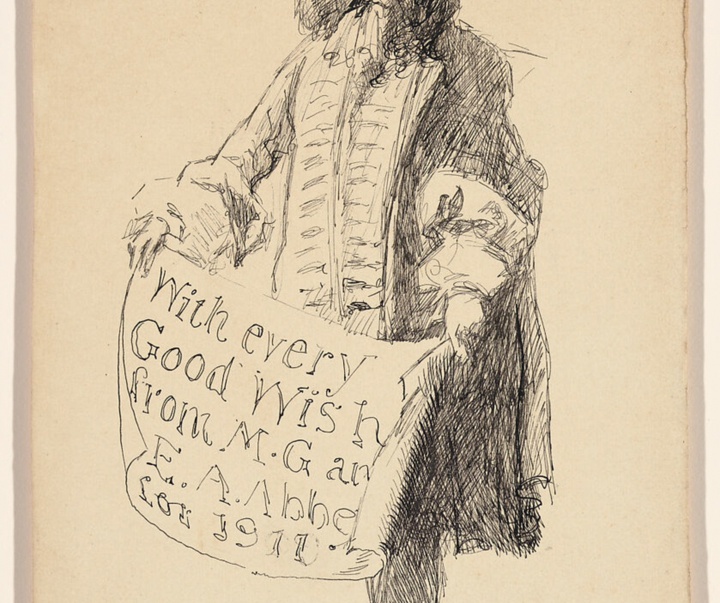 With every
Good Wish
from M.G an
E.A.Abbe
for 1911.